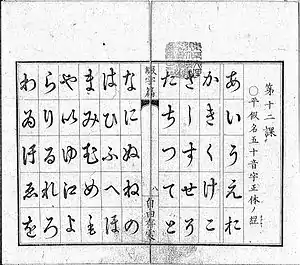 第十二課
○平假名五十音字正体
あいうえお
かきくけこ
さしすせそ
たちつてと
綴字篇
八 自由
なにぬねの
はひふへほ
まみむめも
や以ゆ江よ
らりるれろ
わゐゑを